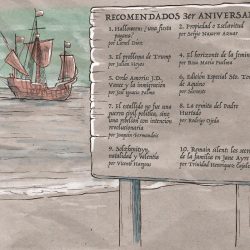 RECOMENDADOS 3er ANIVERSA
1. Halloween: ¿una fiesta
pagana?
por Lionel Yáñez
2. Propiedad o Esclavitud
por Sergio Navarro Aznar
3. El problema de Trump
por Julián Reyes
4. El horizonte de la femini
por Rosa María Palma
5. Ordo Amoris: J.D.
Vance y la inmigración
por José Ignacio Palma
6. Edición Especial Sto. Tom
de Aquino
por
7. El estallido no fue una
guerra civil política, sino
una rebelión con intención
revolucionaria
por Joaquín Fernandois
8. La ermita del Padre
Hurtado
por Rodrigo Ojeda
9.
natalidad y Valentía
por Vicente Hargous
10. Román silent: los secre
de la familia en Jane Ayre
por Trinidad Henríquez